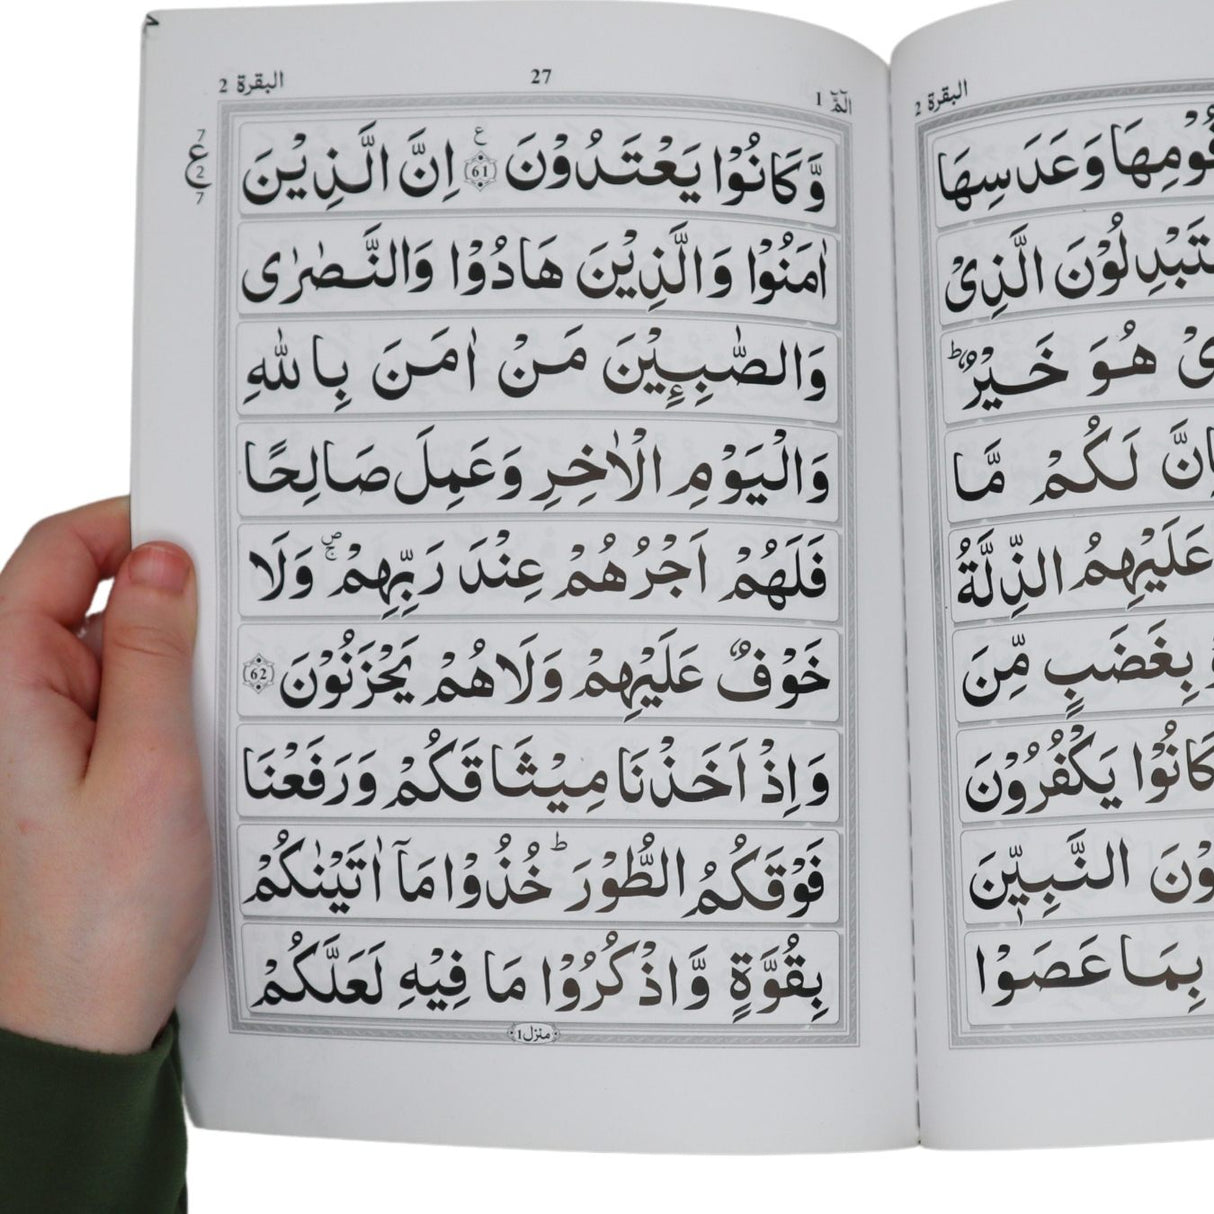 البقرة 2
27
الٓمّٓ 1
7
ع
2
7
وَّكَانُوْا يَعْتَدُوْنَ ع 61 اِنَّ الَّذِيْنَ
اٰمَنُوْا وَالَّذِيْنَ هَادُوْا وَالنَّصٰرٰى
وَالصّٰبِـِٕيْنَ مَنْ اٰمَنَ بِاللّٰهِ
وَالْيَوْمِ الْاٰخِرِ وَعَمِلَ صَالِحًا
فَلَهُمْ اَجْرُهُمْ عِنْدَ رَبِّهِمْ ۖۚ وَلَا
خَوْفٌ عَلَيْهِمْ وَلَاهُمْ يَحْزَنُوْنَ 62
وَاِذْ اَخَذْنَا مِيْثَاقَكُمْ وَرَفَعْنَا
فَوْقَكُمُ الطُّوْرَ ؕ خُذُوْا مَآ اٰتَيْنٰكُمْ
بِقُوَّةٍ وَّاذْكُرُوْا مَا فِيْهِ لَعَلَّكُمْ
منزل 1
البقرة 2
وَعَدَسِهَا
الَّذِىْ
هُوَ خَيْرٌ ؕ
لَكُمْ مَّا
عَلَيْهِمُ الذِّلَّةُ
بِغَضَبٍ مِّنَ
كَانُوْا يَكْفُرُوْنَ
النَّبِيّٖنَ
بِمَا عَصَوْا